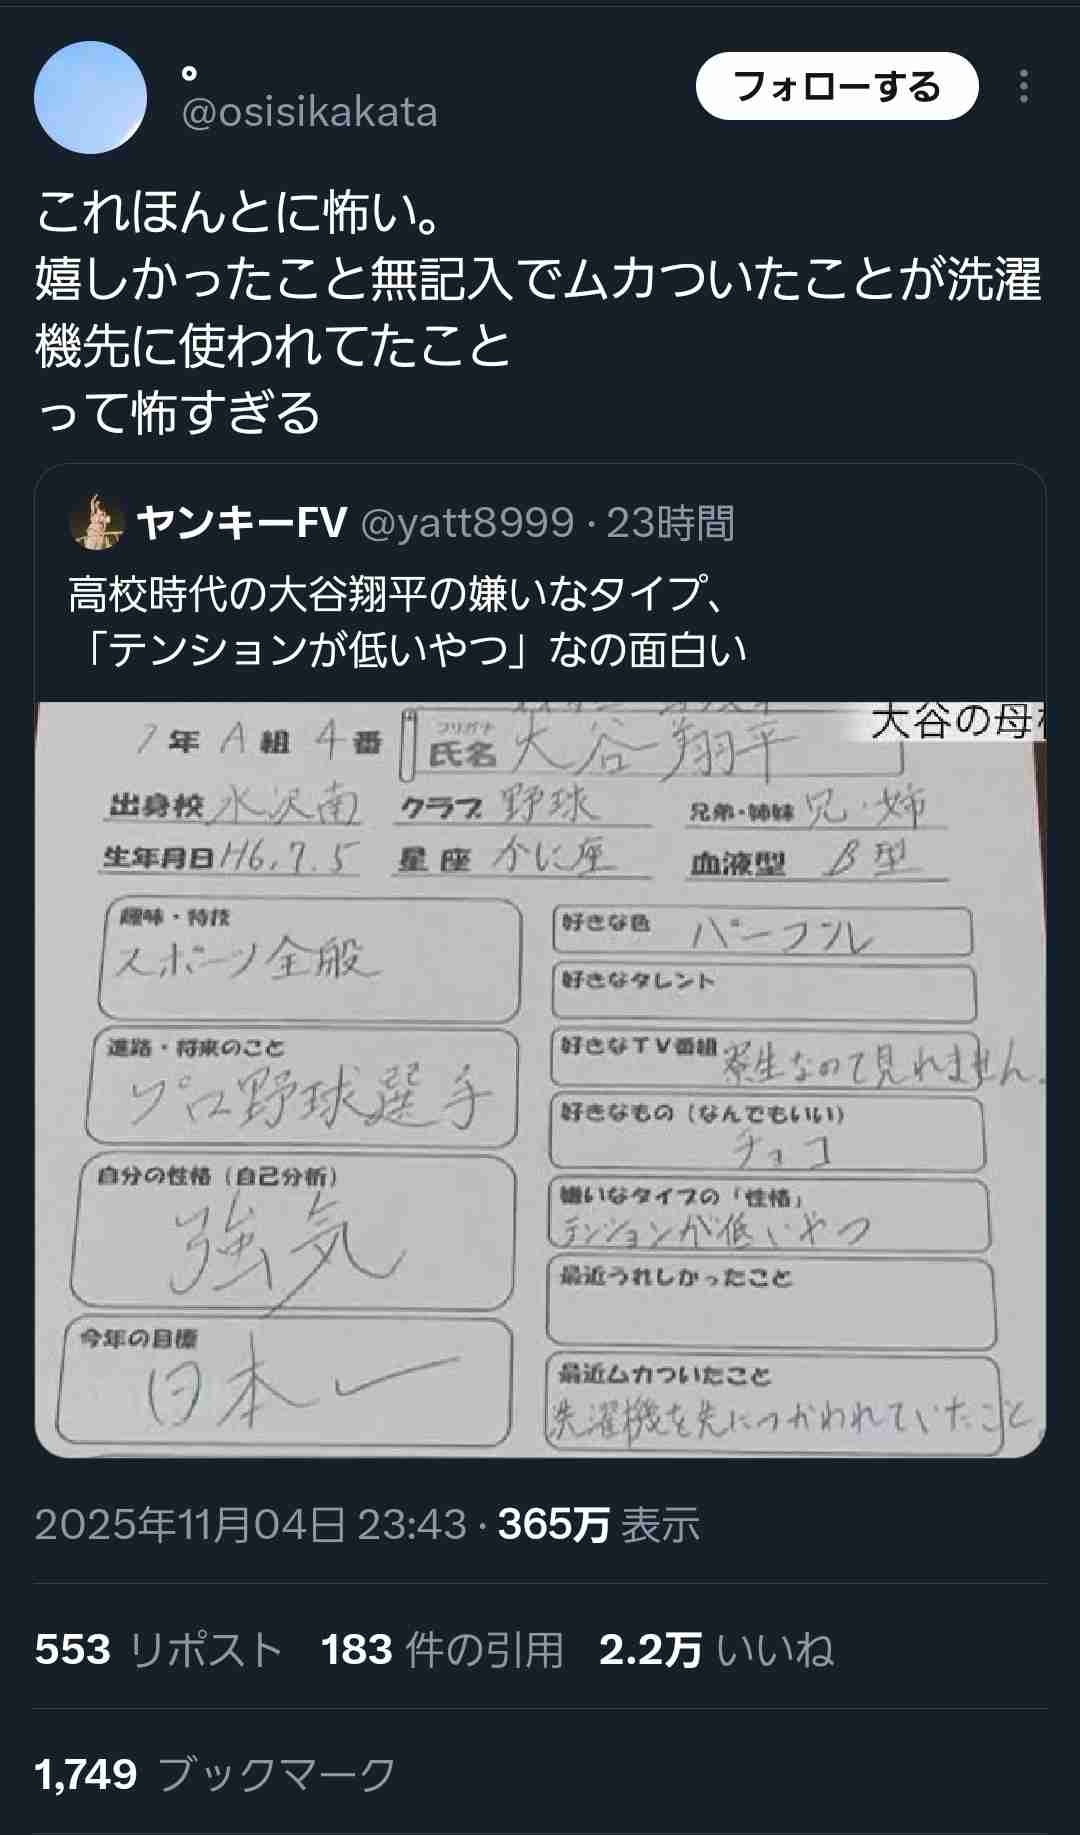 。
@osisikakata
フォローする
これほんとに怖い。
嬉しかったこと無記入でムカついたことが洗濯
機先に使われてたこと
って怖すぎる
ヤンキーFV @yatt8999 · 23時間
高校時代の大谷翔平の嫌いなタイプ、
「テンションが低いやつ」なの面白い
大谷の母
1年 A組 4番
フリガナ
氏名 大谷 翔平
出身校 水沢南 クラブ 野球 兄弟・姉妹 兄・姉
生年月日 H6.7.5 星座 かに座 血液型 B型
趣味・特技
スポーツ全般
進路・将来のこと
プロ野球選手
自分の性格（自己分析）
強気
今年の目標
日本一
好きな色 パープル
好きなタレント
好きなTV番組 寮生なので見れません。
好きなもの（なんでもいい）
チョコ
嫌いなタイプの「性格」
テンションが低いやつ
最近うれしかったこと
最近ムカついたこと
洗濯機を先につかわれていたこと。
2025年11月04日 23:43 · 365万 表示
553 リポスト 183 件の引用 2.2万 いいね
1,749 ブックマーク